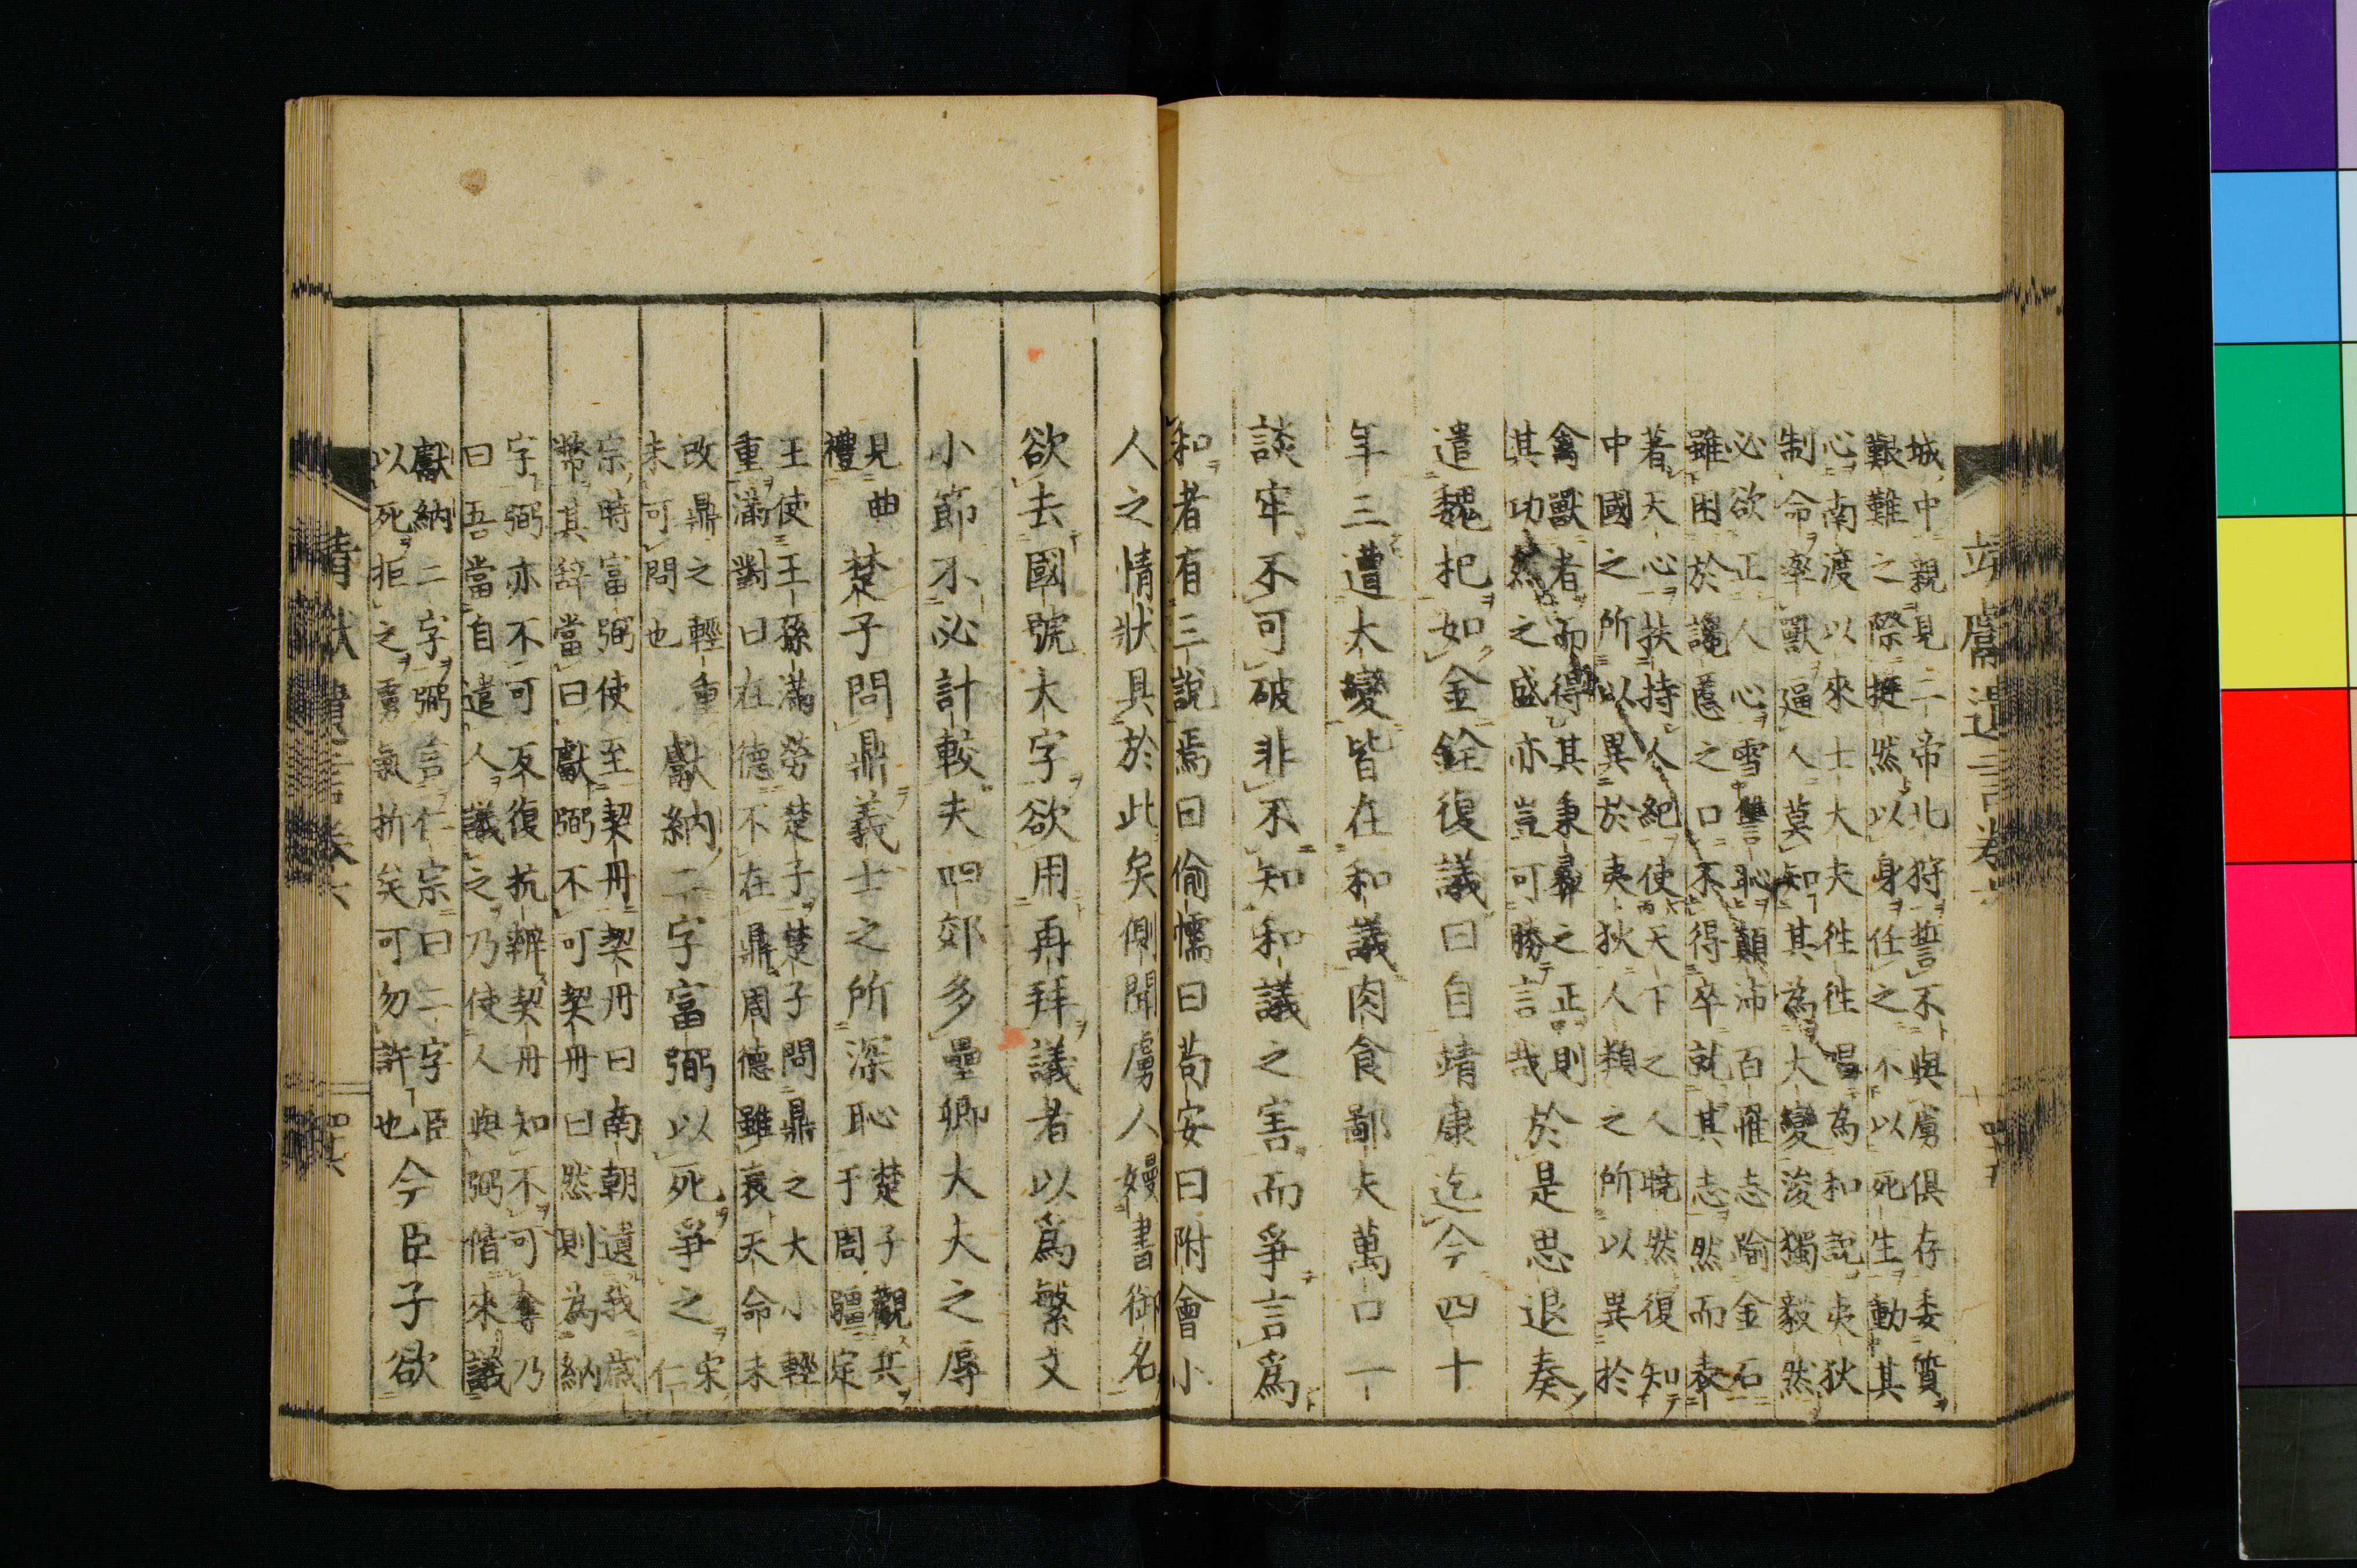 城中親見二帝北狩誓不與虜俱存委質
艱難之際挺然以身任之不以死生動其
心南渡以來士大夫徃徃唱為和說夷狄
制命率獸逼人莫知其為大變浚獨毅然
必欲正人心雪讐恥顛沛百罹志踰金石
雖困於讒慝之口不得卒就其志然而表
著天心扶持人紀使天下之人曉然復知
中國之所以異於夷狄人類之所以異於
禽獸者而得其秉彝之正則
其功烈之盛亦豈可勝言哉於是思退奏
遣魏杞如金銓復議曰自靖康迄今四十
年三遭大變皆在和議肉食鄙夫萬口一
談牢不可破非不知和議之害而爭言爲
和者有三說焉曰偷懦曰苟安曰附會小
人之情狀具於此矣側聞虜人嫚書御名
欲去國號大字欲用再拜議者以爲繁文
小節不必計較夫四郊多壘卿大夫之辱
見曲
禮楚子問鼎義士之所深恥楚子觀兵
于周疆定
王使王孫滿勞楚子楚子問鼎之大小輕
重滿對曰在德不在鼎周德雖衰天命未
改鼎之輕重
未可問也獻納二字富弼以死爭之宋
仁
宗時富弼使至契丹契丹曰南朝遺我歲
幣其辭當曰獻弼不可契丹曰然則為納
字弼亦不可反復抗辨契丹知不可奪乃
曰吾當自遣人議之乃使人與弼偕來議
獻納二字弼言仁宗曰二字臣
以死拒之虜氣折矣可勿許也今臣子欲